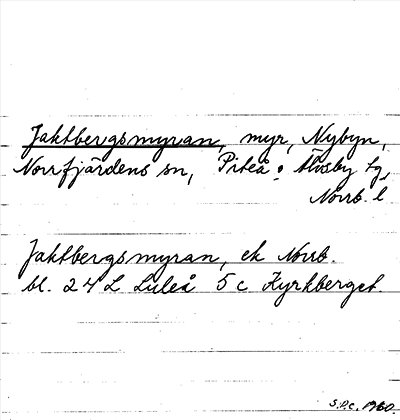 Jaktbergsmyran, myr, Nybyn,
Norrfjärdens sn, Piteå o Älvsby tg,
Norrb. l
Jaktbergsmyran, ek Norrb.
bl. 24L Luleå 5c Kyrkberget.
1960.